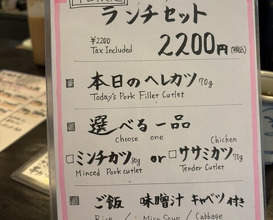 ランチセット
¥2200
Tax Included
2200円(税込)
本日のヘレカツ 70g
Today's Pork Fillet Cutlet
選べる一品
choose one
Chicken
□ミンチカツ 80g or □ササミカツ 70g
Minced Pork cutlet Tender Cutlet
ご飯 味噌汁 キャベツ 付き
Rice / Miso Soup / Cabbage